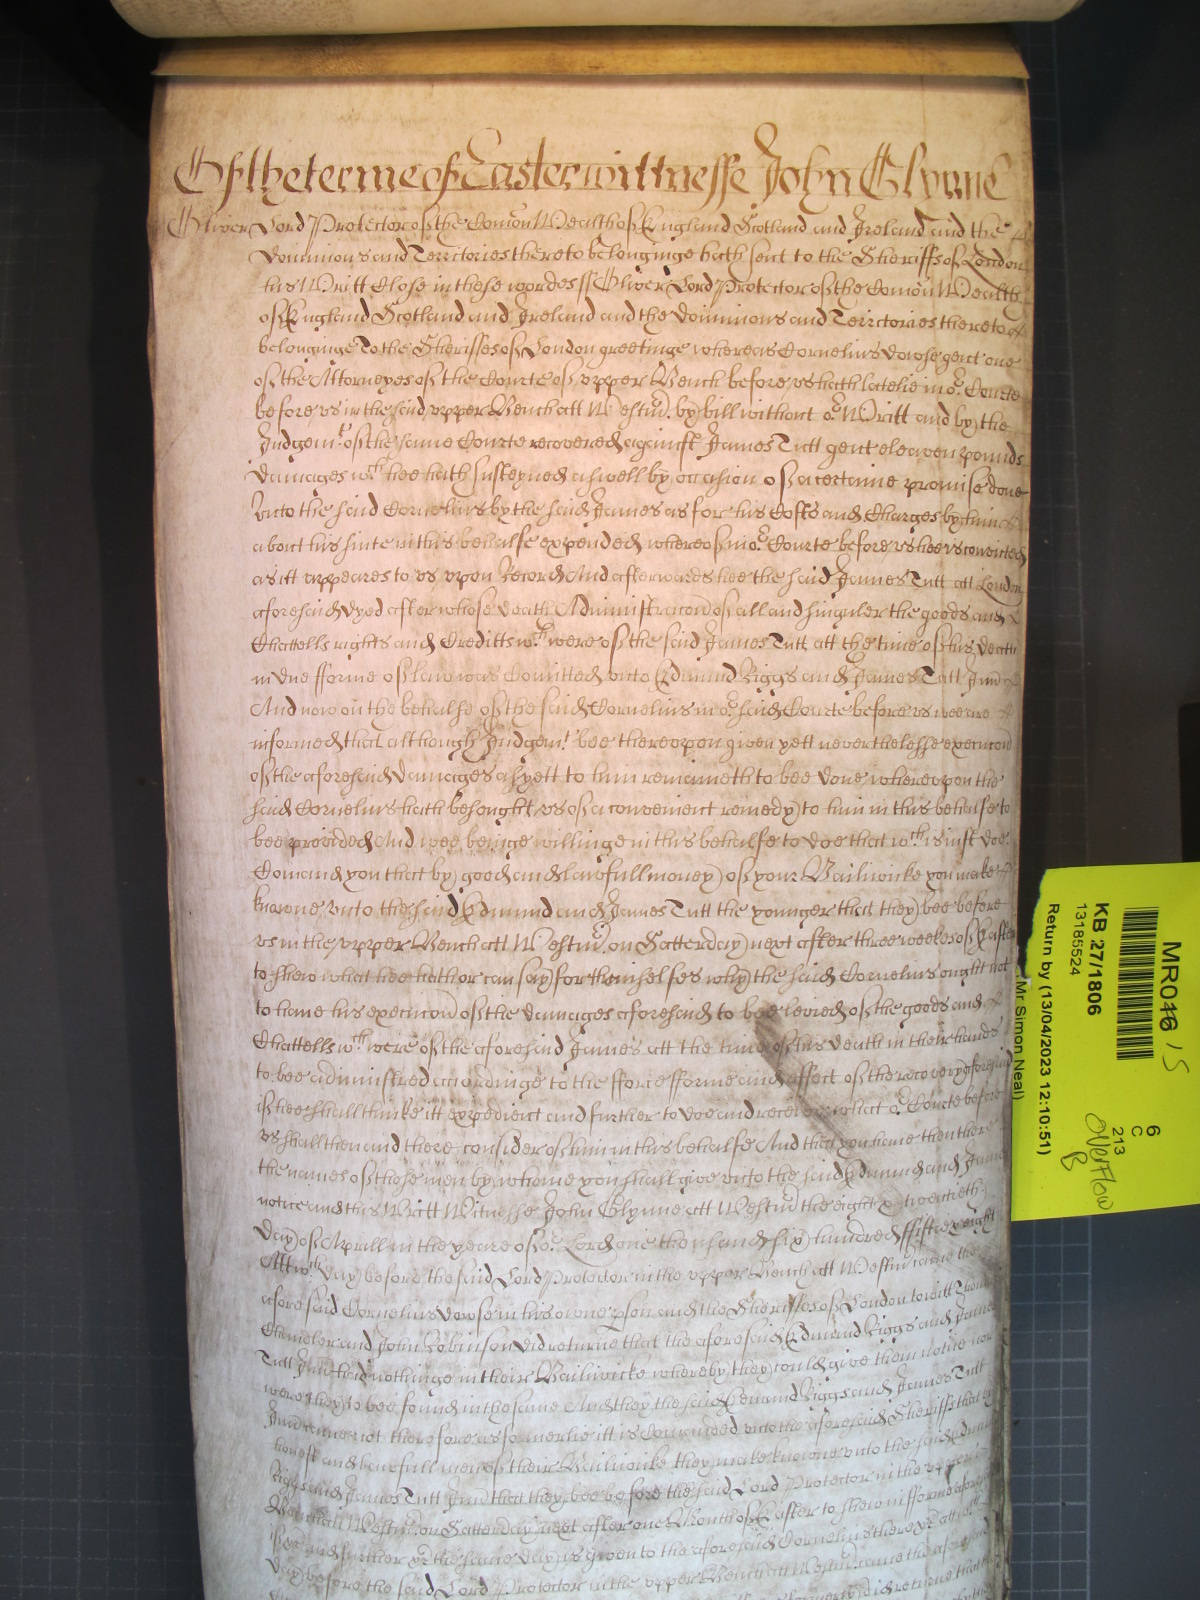 Of the terme of Easter wittnesse John Glynne
Oliver Lord Protector of the Comon Wealth of England Scotland and Ireland and the
Dominions and Territories thereto belonginge hath sent to the Sheriffs of London
his Writt Close in these wordes ss Oliver Lord Protector of the Comon Wealth
of England Scotland and Ireland and the Dominions and Territories thereto
belonginge To the Sheriffes of London greetinge whereas Cornelius Vowse gent one
of the Attorneyes of the Courte of vpper Bench before vs hath latelie in or Courte
before vs in the said vpper Bench att Westm by bill without or Writt and by the
Judgemt of the same Courte recovered against James Tutt gent eleaven pounds
damages wch hee hath susteyned aswell by occasion of a certaine promise done
vnto the said Cornelius by the said James as for his Costs and Charges by him
about his suite in this behalfe expended whereof in or Courte before vs hee is convicted
as itt appeares to vs vpon Record And afterwards hee the said James Tutt att London
aforesaid dyed after whose death Administracon of all and singuler the goods and
Chattells rights and Creditts wch were of the said James Tutt att the time of his death
in due fforme of law was Comitted vnto Edmund Riggs and James Tutt Junr
And now on the behalfe of the said Cornelius in or said Courte before vs wee are
informed that although Judgemt bee thereupon given yett neverthelesse execucon
of the aforesaid damages as yett to him remaineth to bee done wherevpon the
said Cornelius hath besought vs of a convenient remedy to him in this behalfe to
bee provided And wee beinge willinge in this behalfe to doe that wch is iust doe
Comand you that by good and lawfull money of your Bailiwicke you make
knowne vnto the said Edmund and James Tutt the younger that they bee before
vs in the vpper Bench att Westm on Satterday next after three weekes of Easter
to shew what hee hath or can say for themselfes why the said Cornelius ought not
to haue his execucon of the damages aforesaid to bee levied of the goods and
Chattells wch were of the aforesaid James att the time of his death in their hands
to bee administred accordinge to the fforce fforme and effect of the recovery aforesaid
if hee shall thinke itt expedient and further to doe and receive what or Courte before
vs shall then and there consider of him in this behalfe And that you haue then there
the names of those men by whome you shall give vnto the said Edmund and James
notice and this Writt Witnesse John Glynne att Westm the eight & twentieth
day of Aprill in the yeare of or Lord one thousand six hundred ffiftie eight
Att wch day before the said Lord Protector in the vpper Bench att Westm came the
aforesaid Cornelius Vowse in his owne pson and the Sheriffes of London to witt
Chandler and John Robinson did returne that the aforesaid Edmund Riggs and James
Tutt Junr had nothinge in their Bailiwicke whereby they could give them notice nor
were they to bee found in the same And they the said Edmund Riggs and James Tutt
Junr came not therefore as formerlie itt is Comanded vnto the aforesaid Sheriffs that by
honest and lawfull men of their Bailiwicke they make knowne vnto the said Edmund
Riggs and James Tutt Junr that they bee before the said Lord Protector in the vpper
Bench att Westm on Satterday next after one Month of Easter to shew in fforme aforesaid
if &c and further &c the same day is given to the aforesaid Cornelius there &c att wch
day before the said Lord Protector in the vpper Bench att Westm came the aforesaid
MR016 15
6
C
213
Overflow
B
KB 27/1806
13185524
Return by (13/04/2023 12:10:51)
Mr Simon Neal)